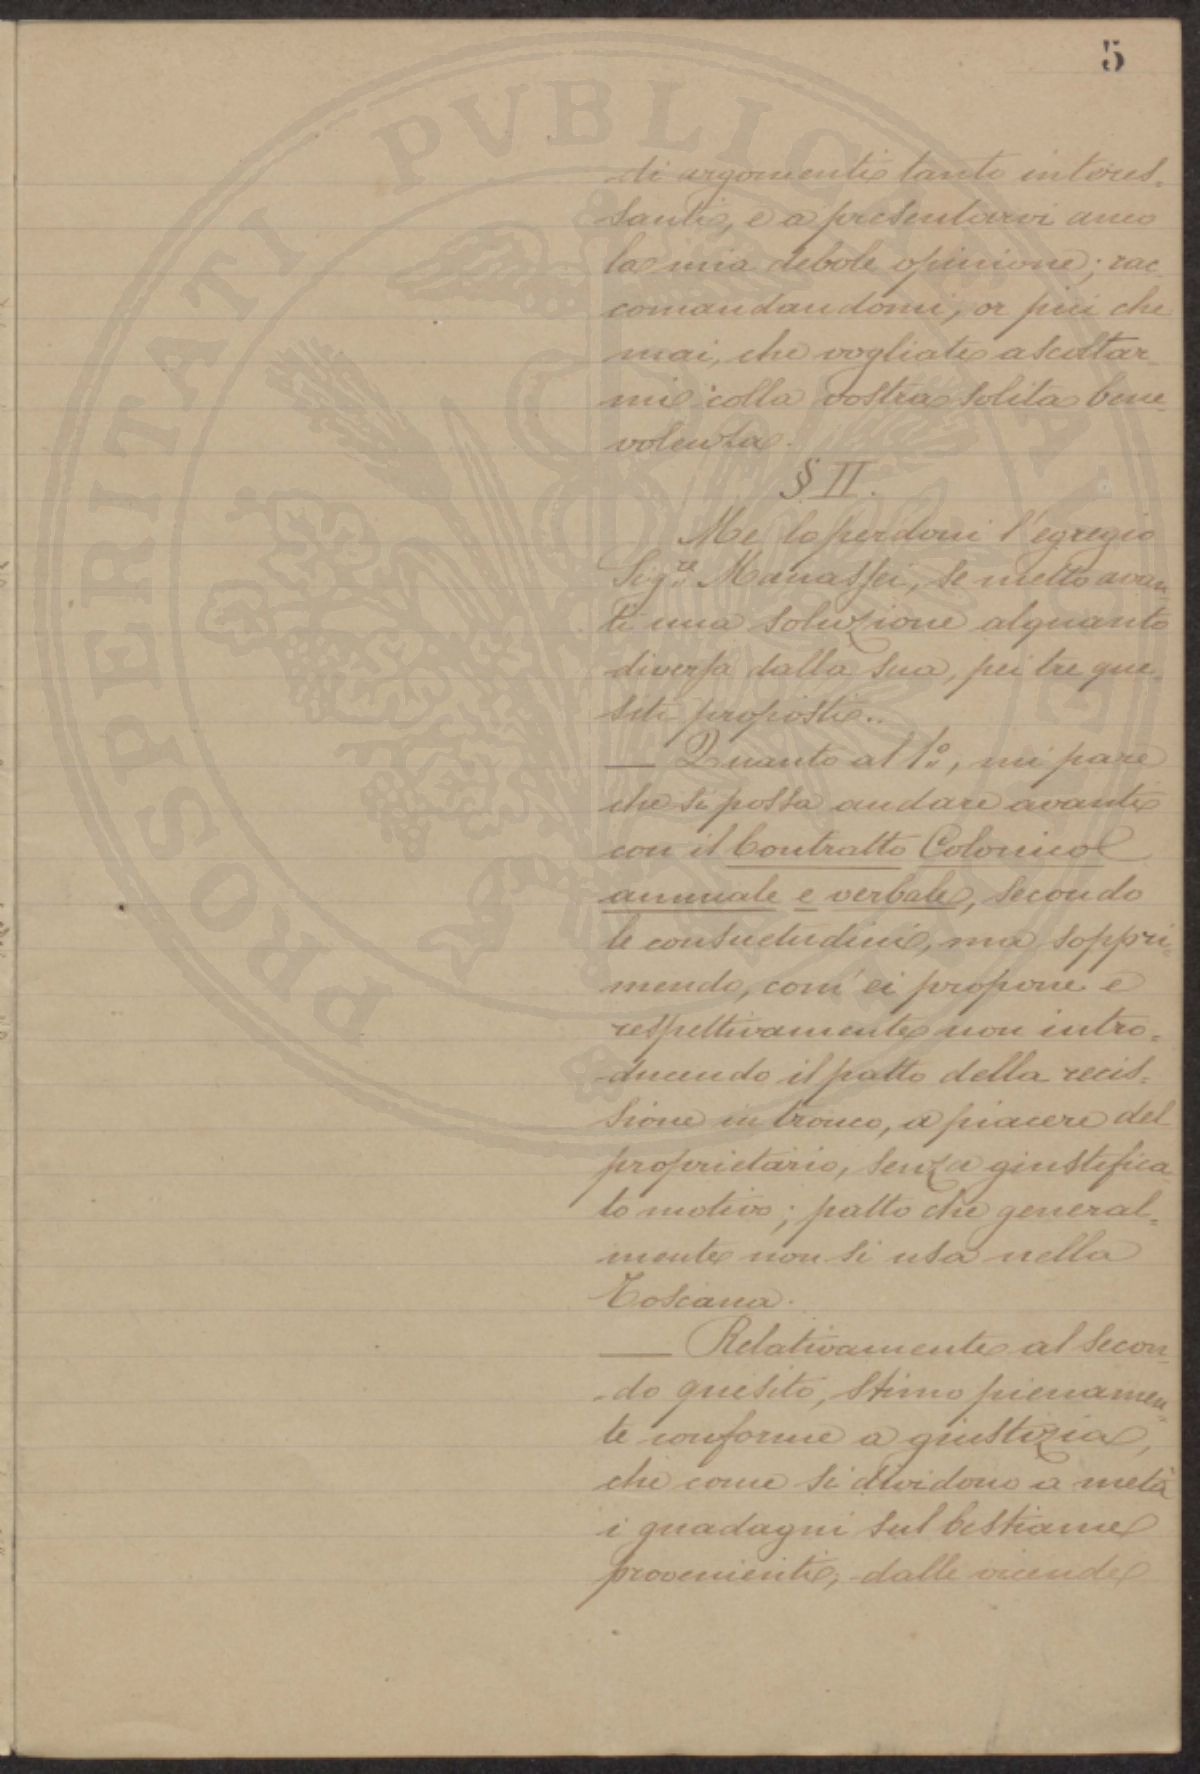 5
di argomenti tanto interes=
santi, e a presentarvi anco
la mia debole opinione; rac
comandandomi, or più che
mai, che vogliate ascoltar-
mi colla vostra solita bene-
volenza.
§ II.
Me lo perdoni l'egregio
Sig.re Manassei, se metto avan-
ti una soluzione alquanto
diversa dalla sua, pei tre que
siti proposti..
— Quanto al 1.o, mi pare
che si possa andare avanti
con il Contratto Colonico
annuale e verbale, secondo
le consuetudini, ma soppri=
mendo, com' ei propone e
respettivamente non intro=
ducendo il patto della recis=
sione in tronco, a piacere del
proprietario, senza giustifica
to motivo; patto che general=
mente non si usa nella
Toscana.
— Relativamente al secon
do quesito, stimo pienamen=
te conforme a giustizia,
che come si dividono a metà
i guadagni sul bestiame
provenienti, dalle vicende
PROSPERITATI PVBLICAE